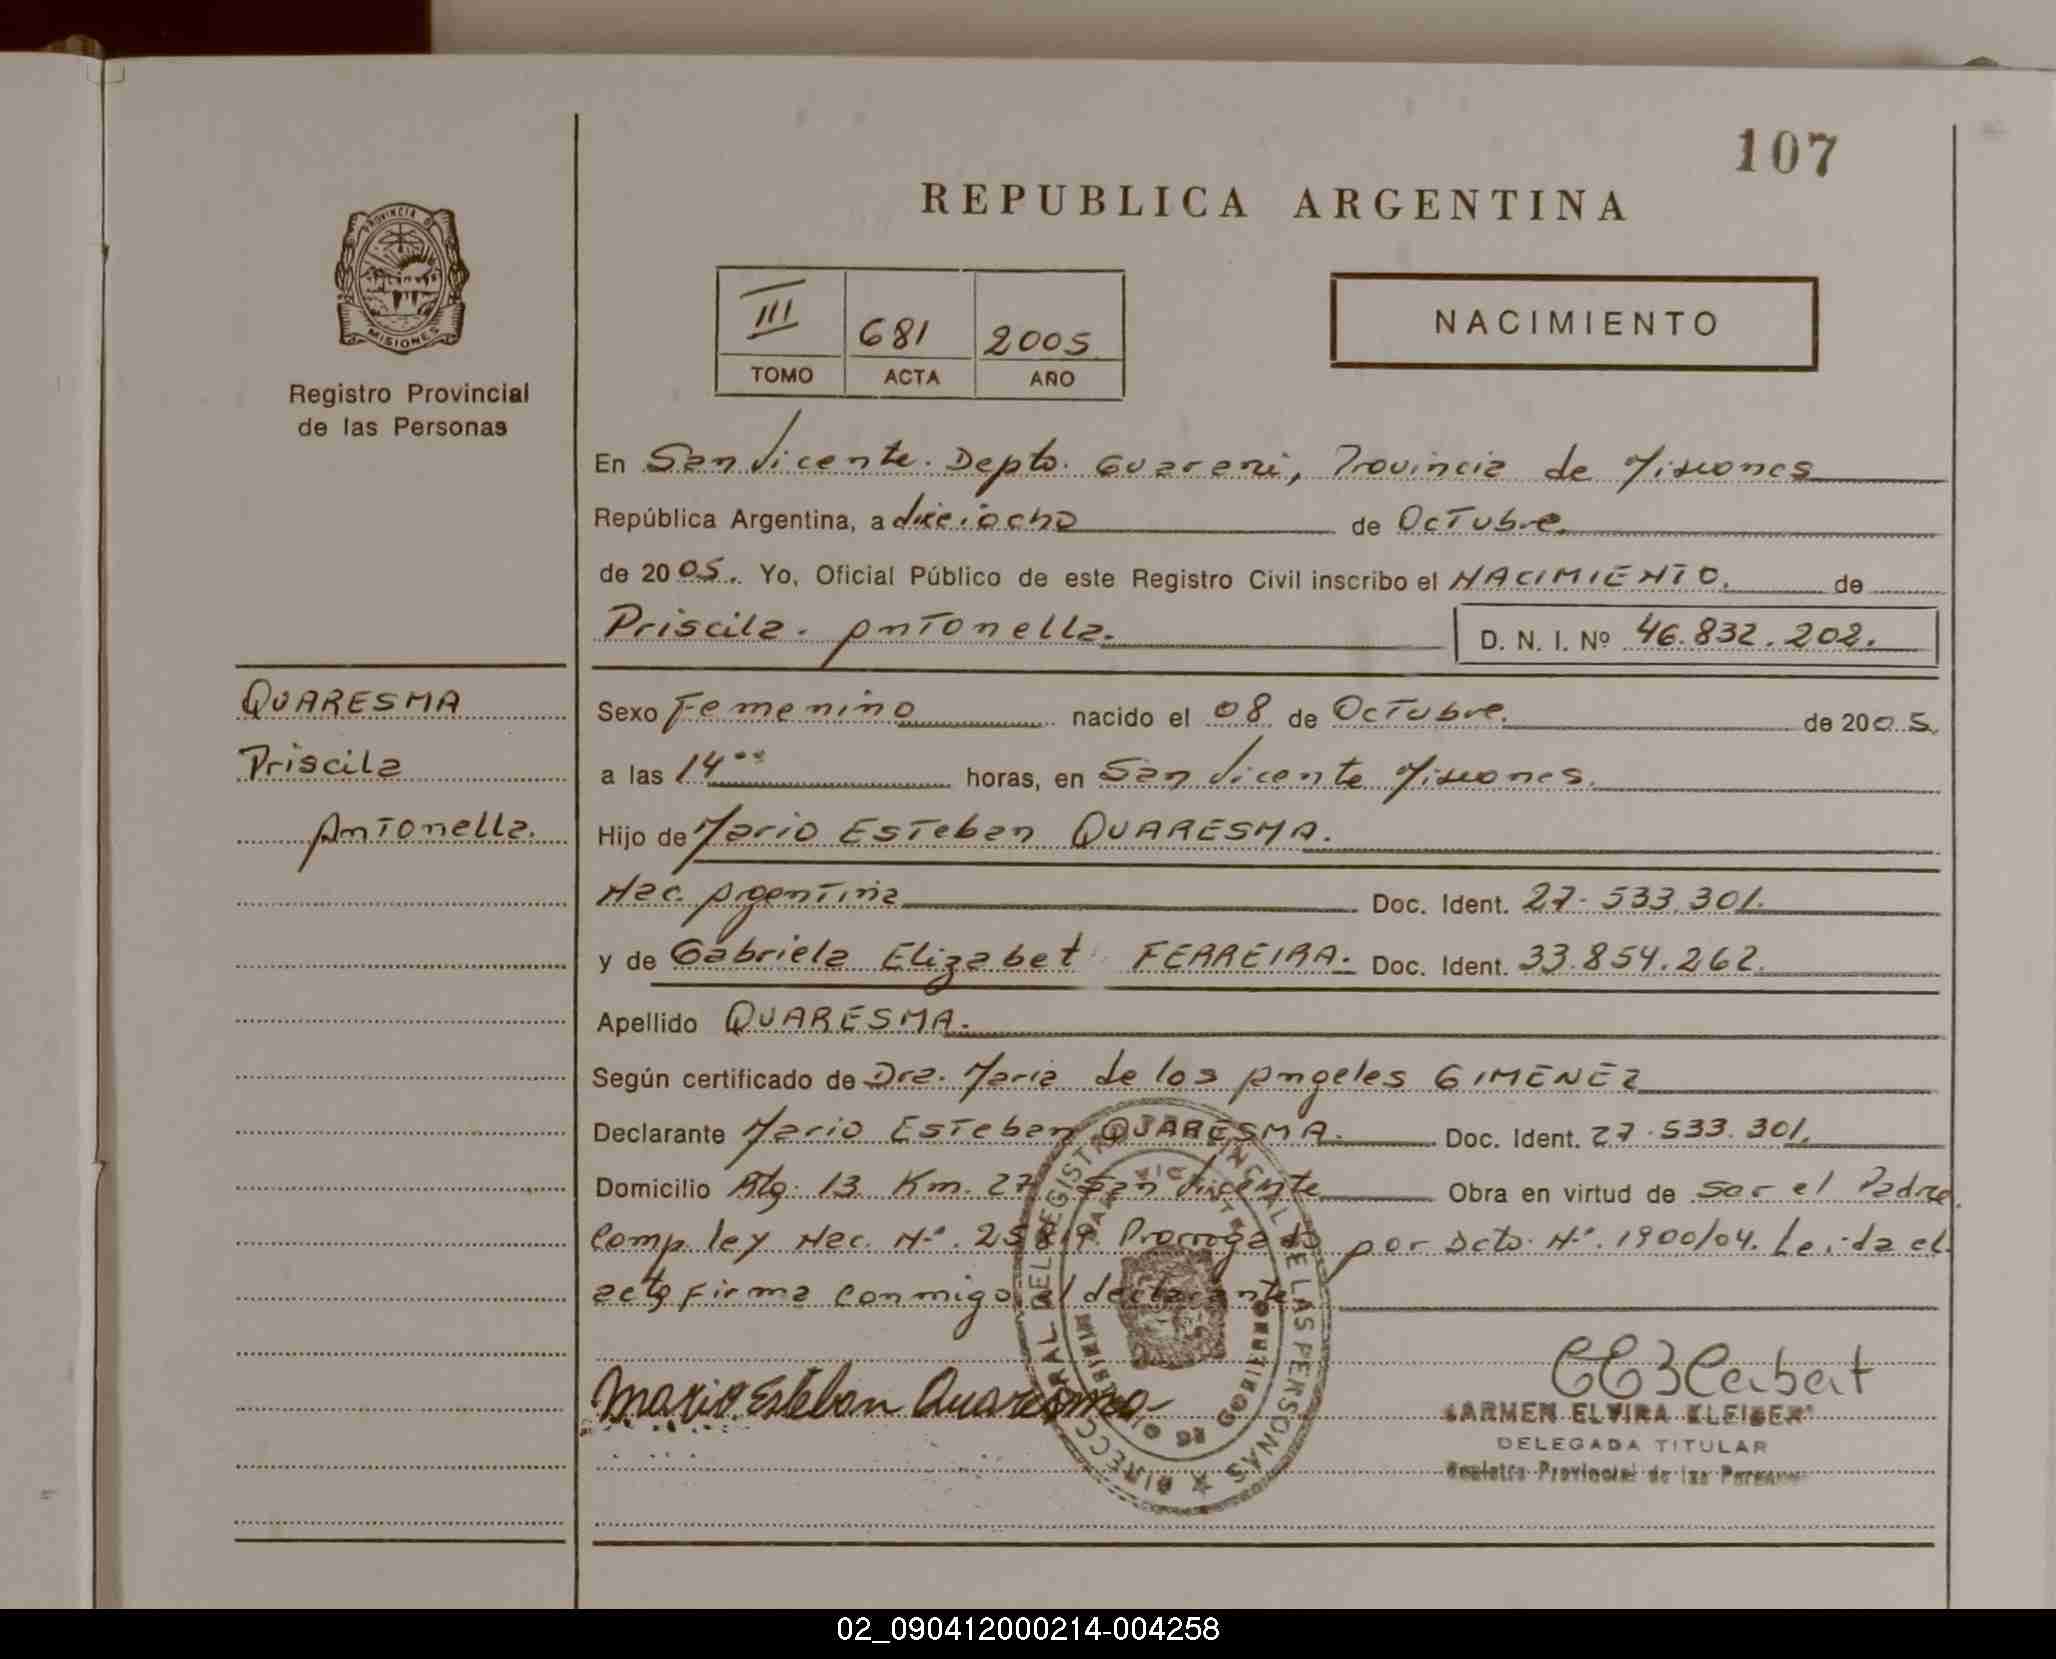 107
REPUBLICA ARGENTINA
PROVINCIA DE
MISIONES
Registro Provincial
de las Personas
III 681 2005
TOMO ACTA AÑO
NACIMIENTO
En San Vicente. Depto. Guarani, Provincia de Misiones
República Argentina, a dieciocho de Octubre.
de 2005. Yo, Oficial Público de este Registro Civil inscribo el NACIMIENTO. de
Priscila. Antonella.
D. N. I. Nº 46.832.202.
QUARESMA
Priscila
Antonella.
Sexo Femenino nacido el 08 de Octubre. de 2005.
a las 14⁰⁰ horas, en San Vicente Misiones.
Hijo de Mario Esteban QUARESMA.
Nac. Argentina Doc. Ident. 27.533.301.
y de Gabriela Elizabet FERREIRA. Doc. Ident. 33.854.262.
Apellido QUARESMA.
Según certificado de Dra. Maria de los Angeles GIMENEZ
Declarante Mario Esteban QUARESMA. Doc. Ident. 27.533.301.
Domicilio Rta. 13 Km. 27 San Vicente Obra en virtud de ser el Padre.
Comp. ley Nac. Nº. 25819 Prorrogado por Dcto. Nº. 1900/04. Leida el
acta firma conmigo el declarante
Mario Esteban Quaresma
CARMEN ELVIRA KLEIBER
DELEGADA TITULAR
Registro Provincial de las Personas
02_090412000214-004258